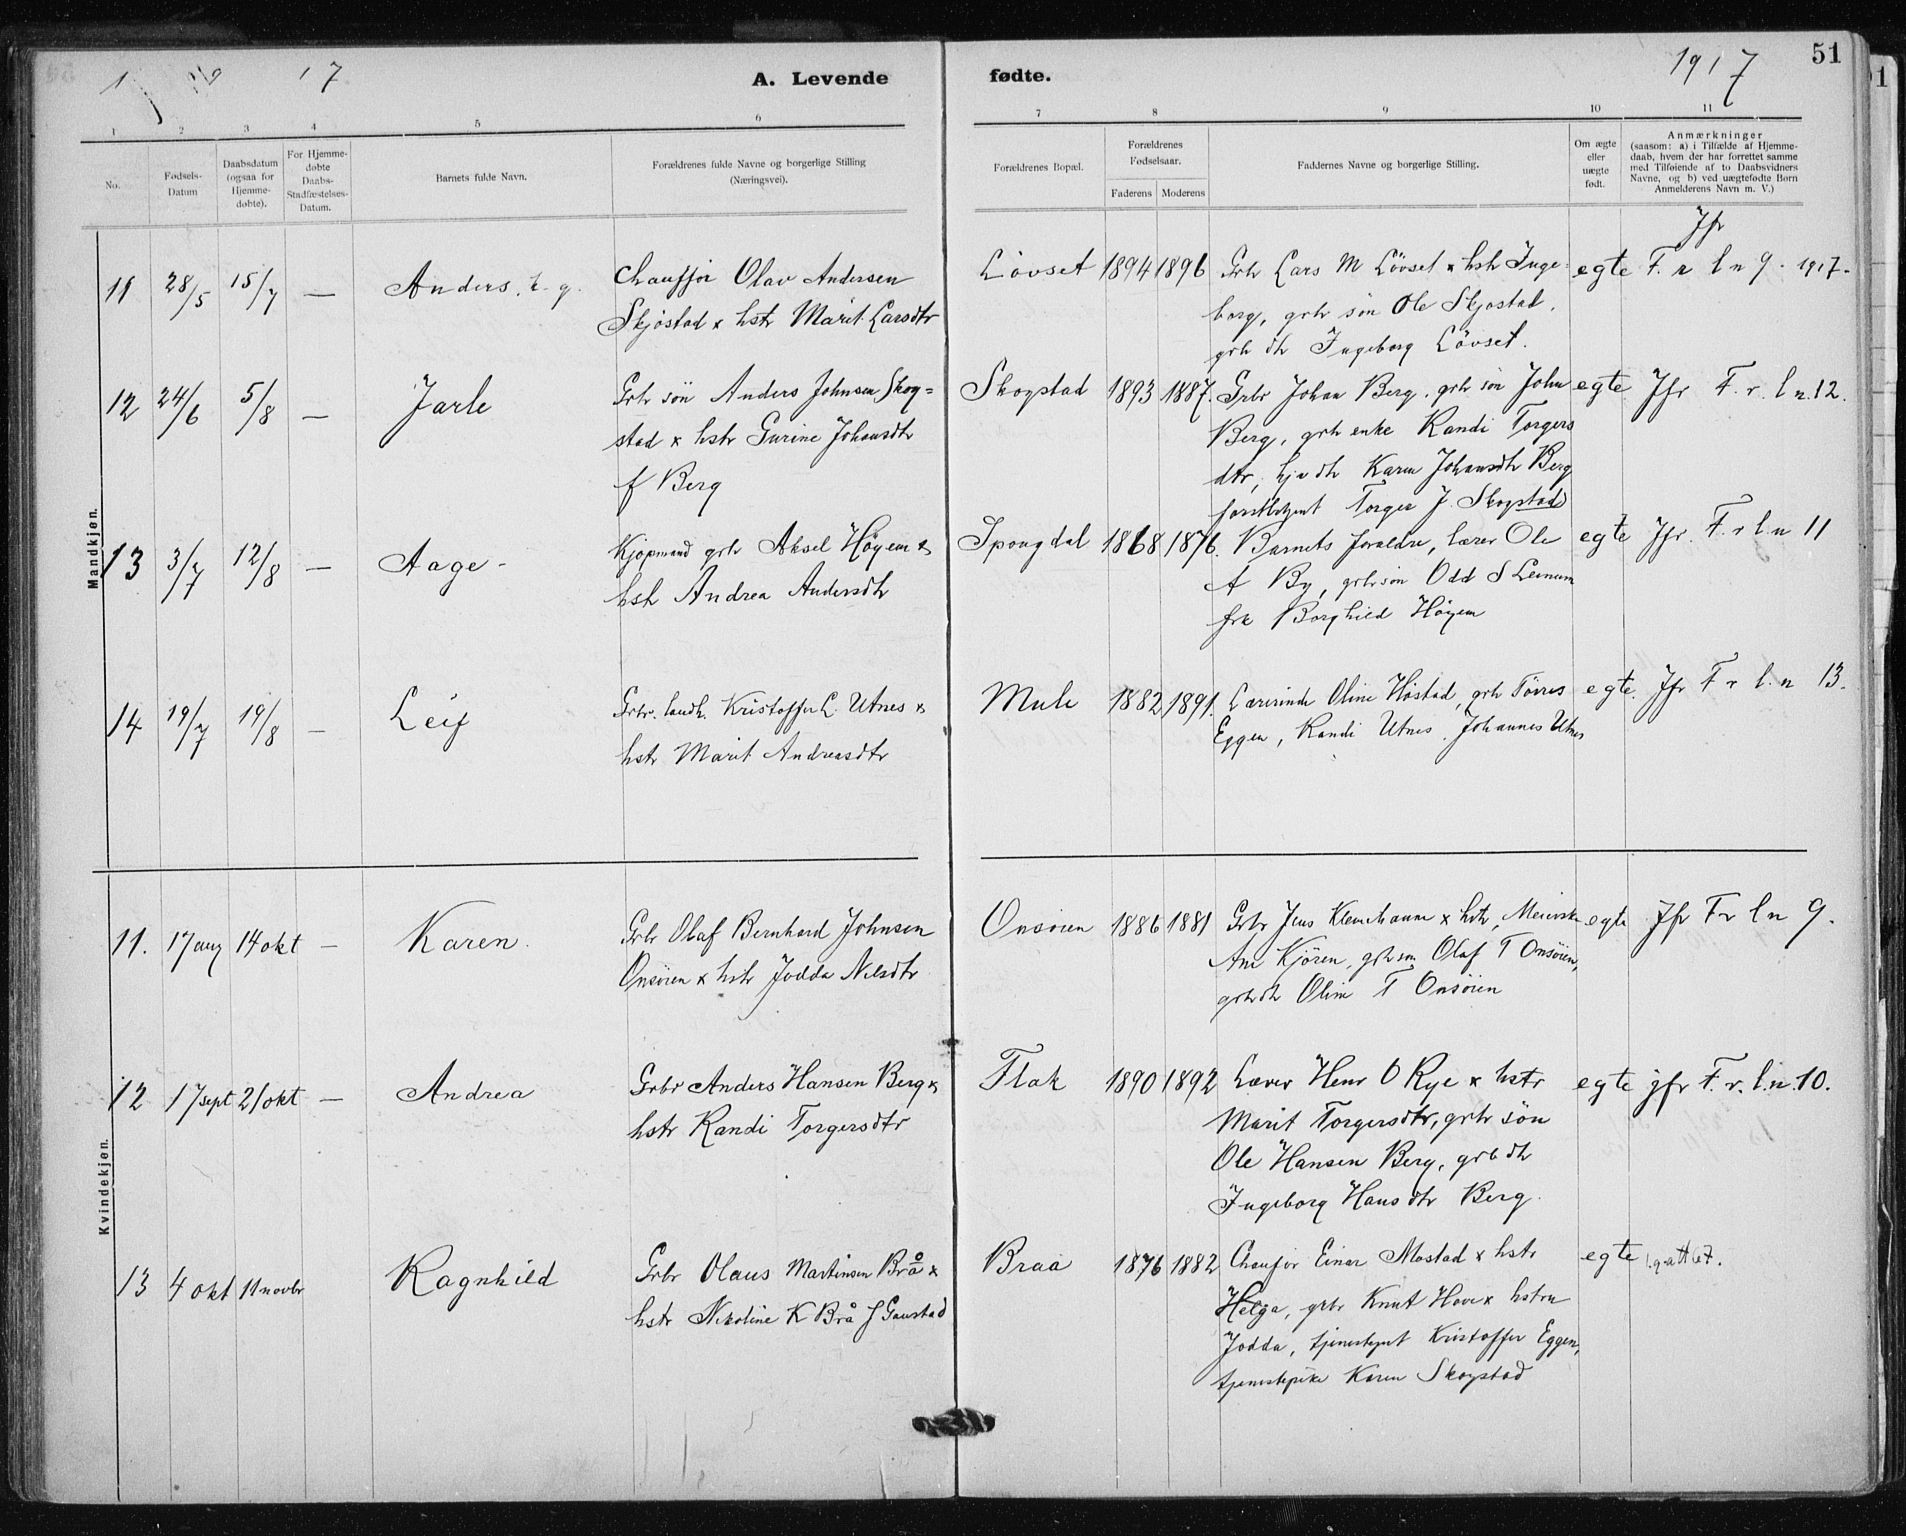 1917
A. Levende fødte.
1917
51
1 2 3 4 5 6 7 8 9 10 11
No.
Fødsels-
Datum
Daabsdatum
(ogsaa for
Hjemme-
døbte).
For Hjemme-
døbte
Daabs-
Stadfæstelses-
Datum.
Barnets fulde Navn.
Forældrenes fulde Navne og borgerlige Stilling
(Næringsvei).
Forældrenes Bopæl.
Forældrenes
Fødselsaar.
Faderens Moderens
Faddernes Navne og borgerlige Stilling.
Om ægte
eller
uægte
født.
Anmærkninger
(saasom: a) i Tilfælde af Hjemme-
daab, hvem der har forrettet samme
med Tilføiende af to Daabsvidners
Navne, og b) ved uægtefødte Børn
Anmelderens Navn m. V.)
Mandkjøn.
11 28/5 15/7 — Anders
Chauffør Olav Andersen
Skjøstad x hstr Marit Larsdtr
Løvset 1894 1896
Grbr Lars M Løvset x hstr Inge
borg, grbr søn Ole Skjøstad,
grbr dtr Ingeborg Løvset.
egte
Jfr
F. r l n 9. 1917.
12 24/6 5/8 — Jarle
Grbr søn Anders Johnsen Skog=
stad x hstr Gurine Johansdtr
f Berg
Skogstad 1893 1887.
Grbr Johan Berg, grbr søn John
Berg, grbr enke Randi Torgers
dtr, hjv dtr Karen Johansdtr Berg
Torger J. Skogstad
egte Jfr F. r. l n. 12.
13 3/7 12/8 — Aage
Kjøpmand grbr Aksel Høyem x
hstr Andrea Andersdtr
Spongdal 1868 1876.
Barnets forældre, lærer Ole
A By, grbr søn Odd S Leinum
frk Borghild Høyem
egte Jfr. F. r l. n 11
14 19/7 19/8 — Leif
Grbr. landh. Kristoffer L. Utnes x
hstr Marit Andreasdtr
Mule 1882 1891.
Lærerinde Oline Høstad, grbr Tørres
Eggen, Randi Utnes, Johannes Utnes
egte. Jfr F r l. n 13.
Kvindekjøn.
11. 17 aug 14 okt — Karen.
Grbr Olaf Bernhard Johnsen
Onsøien x hstr Jodda Nilsdtr
Onsøien 1886 1881
Grbr Jens Klemethaune x hstr, Meierske
Ane Kjøren, grbr søn Olaf T Onsøien,
grbr dtr Oline T Onsøien
egte Jfr F r l n 9.
12 17 sept 21 okt — Andrea
Grbr Anders Hansen Berg x
hstr Randi Torgersdtr
Flak 1890 1892
Lærer Henr O Rye x hstr
Marit Torgersdtr, grbr søn
Ole Hansen Berg, grb dtr
Ingeborg Hansdtr Berg.
egte jfr F. r. l. n. 10.
13 4 okt 11 novbr Ragnhild
Grbr Olaus Martinsen Brå x
hstr Nikoline K Brå f Gaustad
Braa 1876 1882
Chaufør Einar Mostad x hstr
Helga, grbr Knut Hove x hstru
Jodda, tjenestegut Kristoffer Eggen,
tjenestepike Karen Skogstad
egte